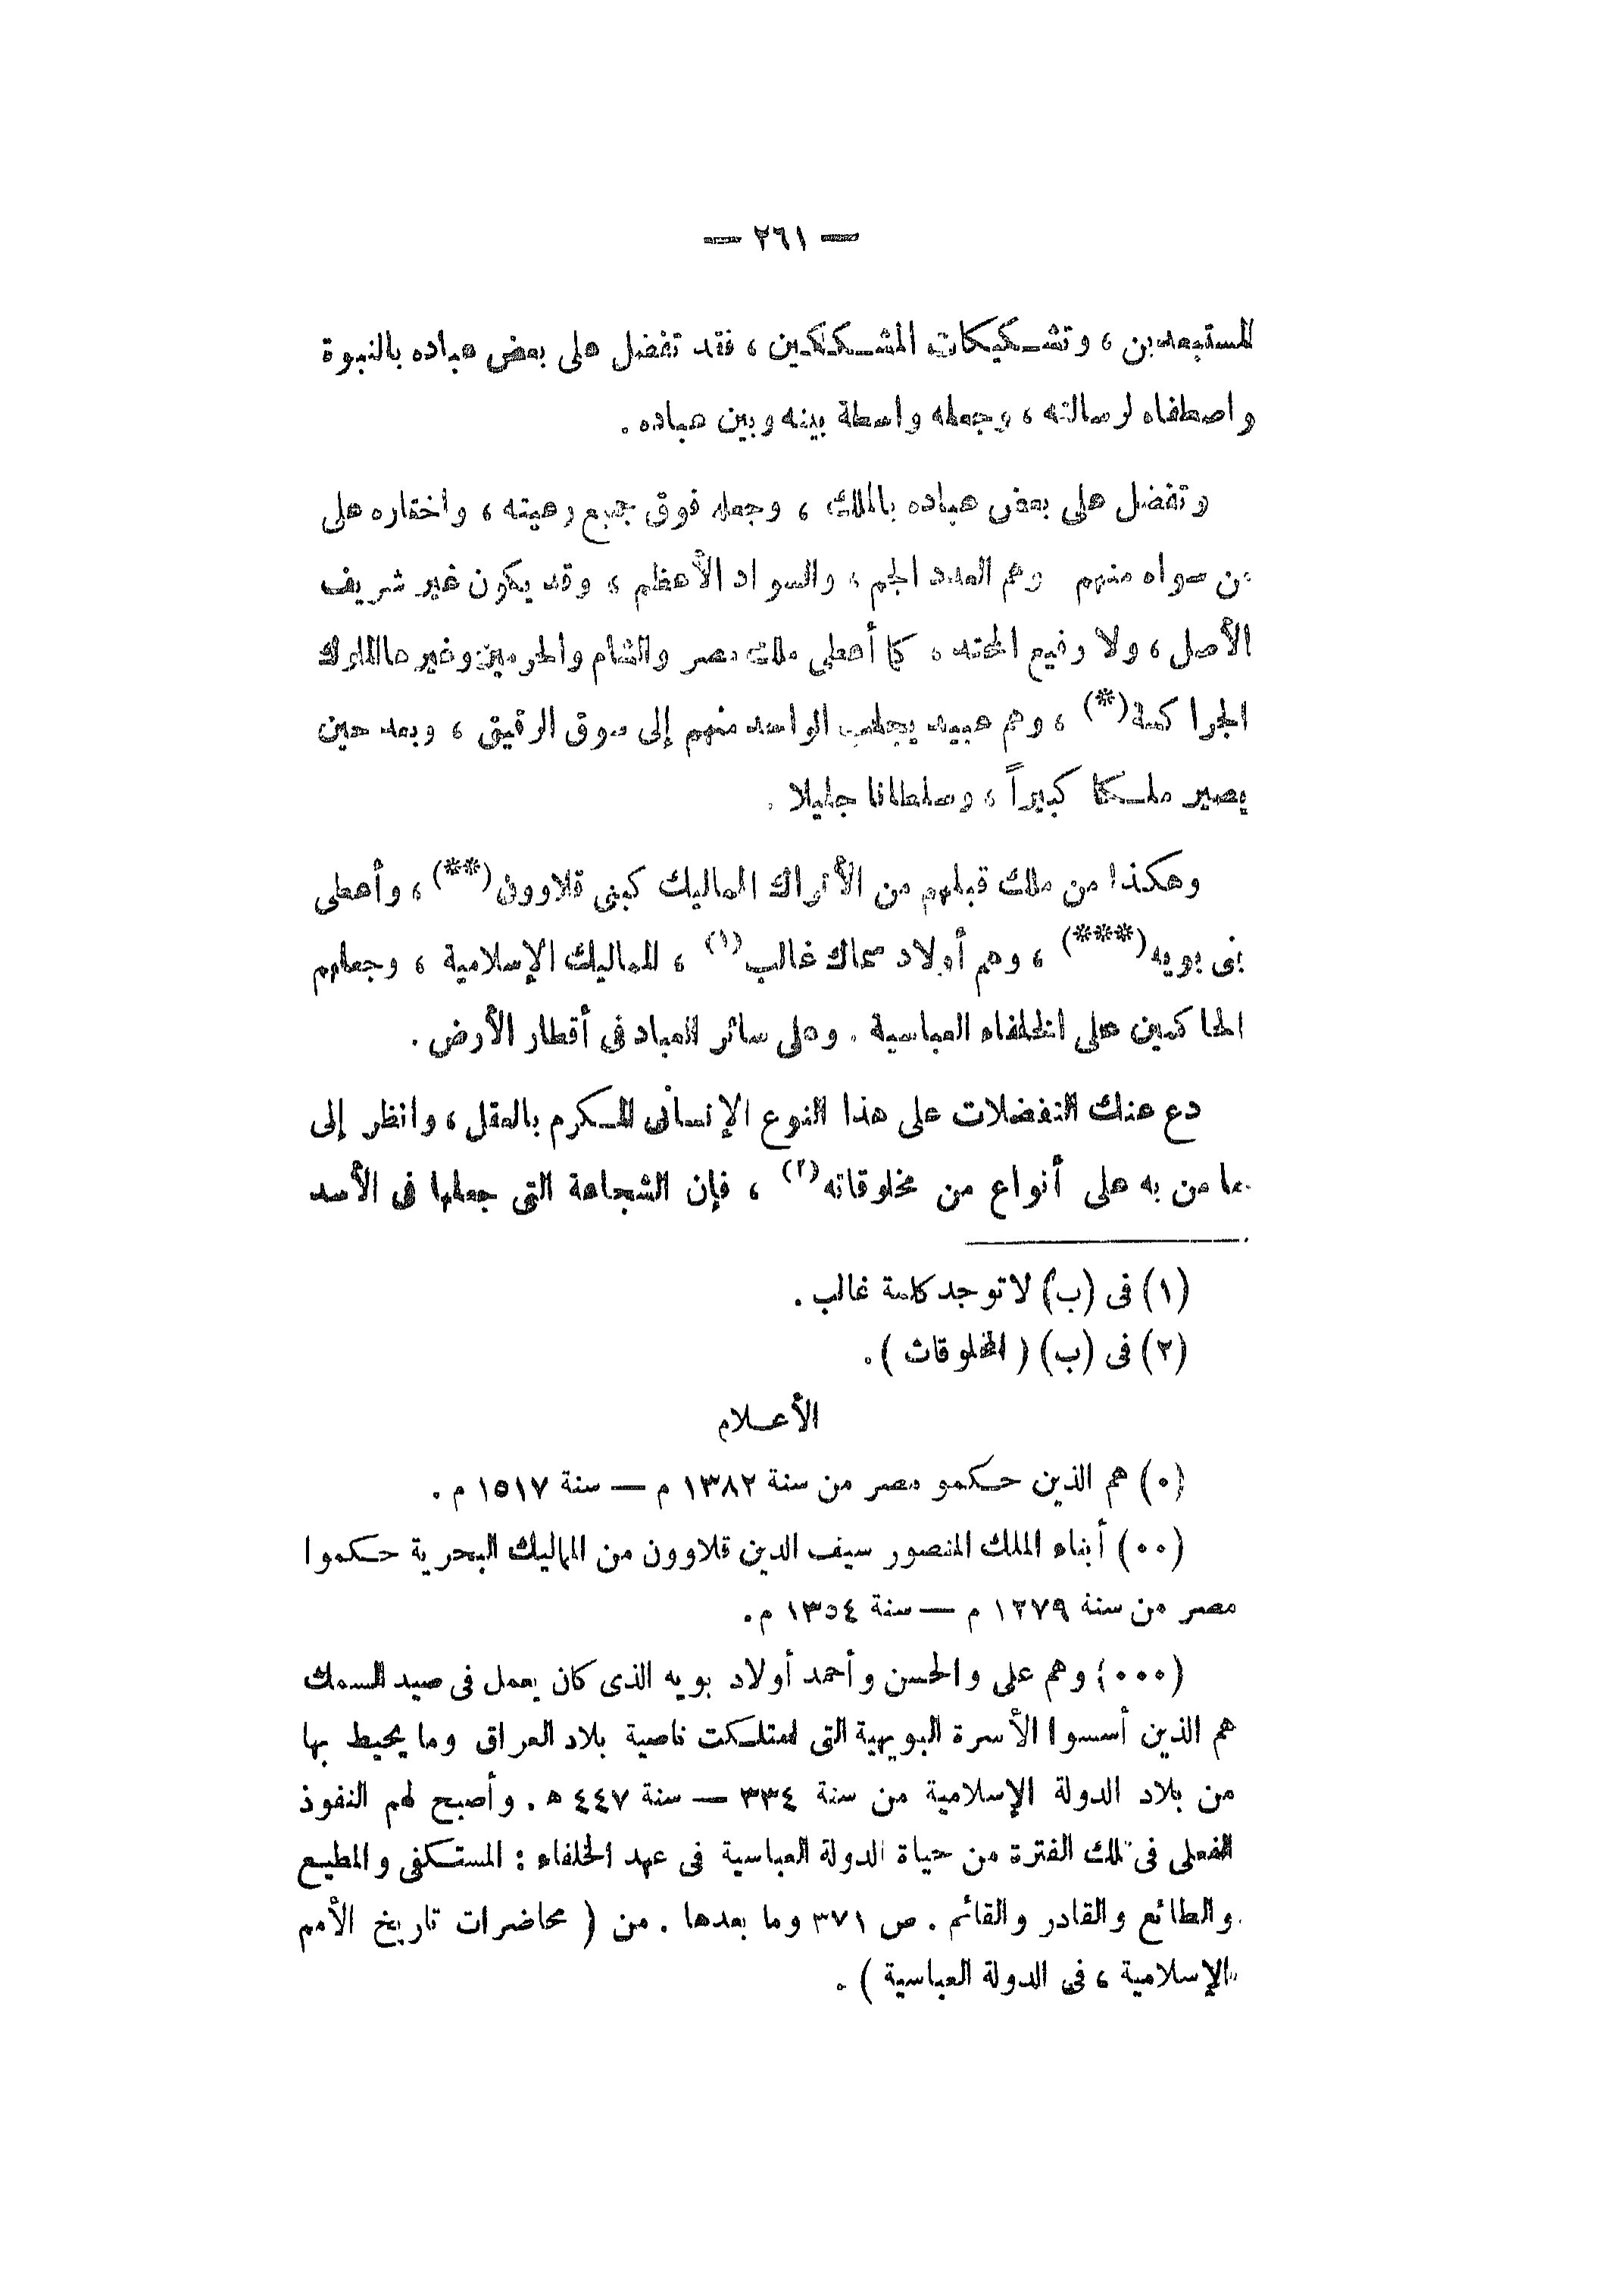 — ٢٦١ —
المستبعدين ، وتشكيكات المشككين ، فقد تفضل على بعض عباده بالنبوة
واصطفاه لرسالته ، وجعله واسطة بينه وبين عباده .
وتفضل على بعض عباده بالملك ، وجعله فوق جميع رعيته ، واختاره على
من سواه منهم وهم العدد الجم ، والسواد الأعظم ، وقد يكون غير شريف
الأصل ، ولا رفيع المحتد ، كما أعطى ملك مصر والشام والحرمين وغيرها الملوك
الجراكسة(*) ، وهم عبيد يجلب الواحد منهم إلى سوق الرقيق ، وبعد حين
يصير ملكا كبيراً ، وسلطانا جليلا .
وهكذا من ملك قبلهم من الأتراك المماليك كبنى قلاوون(**) ، وأعطى
بنى بويه(***) ، وهم أولاد سماك غالب(١) ، الماليك الإسلامية ، وجعلهم
الحاكمين على الخلفاء العباسية . وعلى سائر العباد فى أقطار الأرض .
دع عنك التفضلات على هذا النوع الإنسانى المكرم بالعقل ، وانظر إلى
ما من به على أنواع من مخلوقاته(٢) ، فإن الشجاعة التى جعلها فى الأسد
(١) فى (ب) لا توجد كلمة غالب .
(٢) فى (ب) ( المخلوقات ) .
الأعلام
(٠) هم الذين حكمو مصر من سنة ١٣٨٢ م — سنة ١٥١٧ م .
(٠٠) أبناء الملك المنصور سيف الدين قلاوون من المماليك البحرية حكموا
مصر من سنة ١٢٧٩ م — سنة ١٣٥٤ م .
(٠٠٠) وهم على والحسن وأحمد أولاد بويه الذى كان يعمل فى صيد السمك
هم الذين أسسوا الأسرة البويهية التى امتلكت ناصية بلاد العراق وما يحيط بها
من بلاد الدولة الإسلامية من سنة ٣٣٤ — سنة ٤٤٧ ه . وأصبح لهم النفوذ
الفعلى فى تلك الفترة من حياة الدولة العباسية فى عهد الخلفاء : المستكفى والمطيع
والطائع والقادر والقائم . ص ٣٧١ وما بعدها . من ( محاضرات تاريخ الأمم
الإسلامية ، فى الدولة العباسية ) .